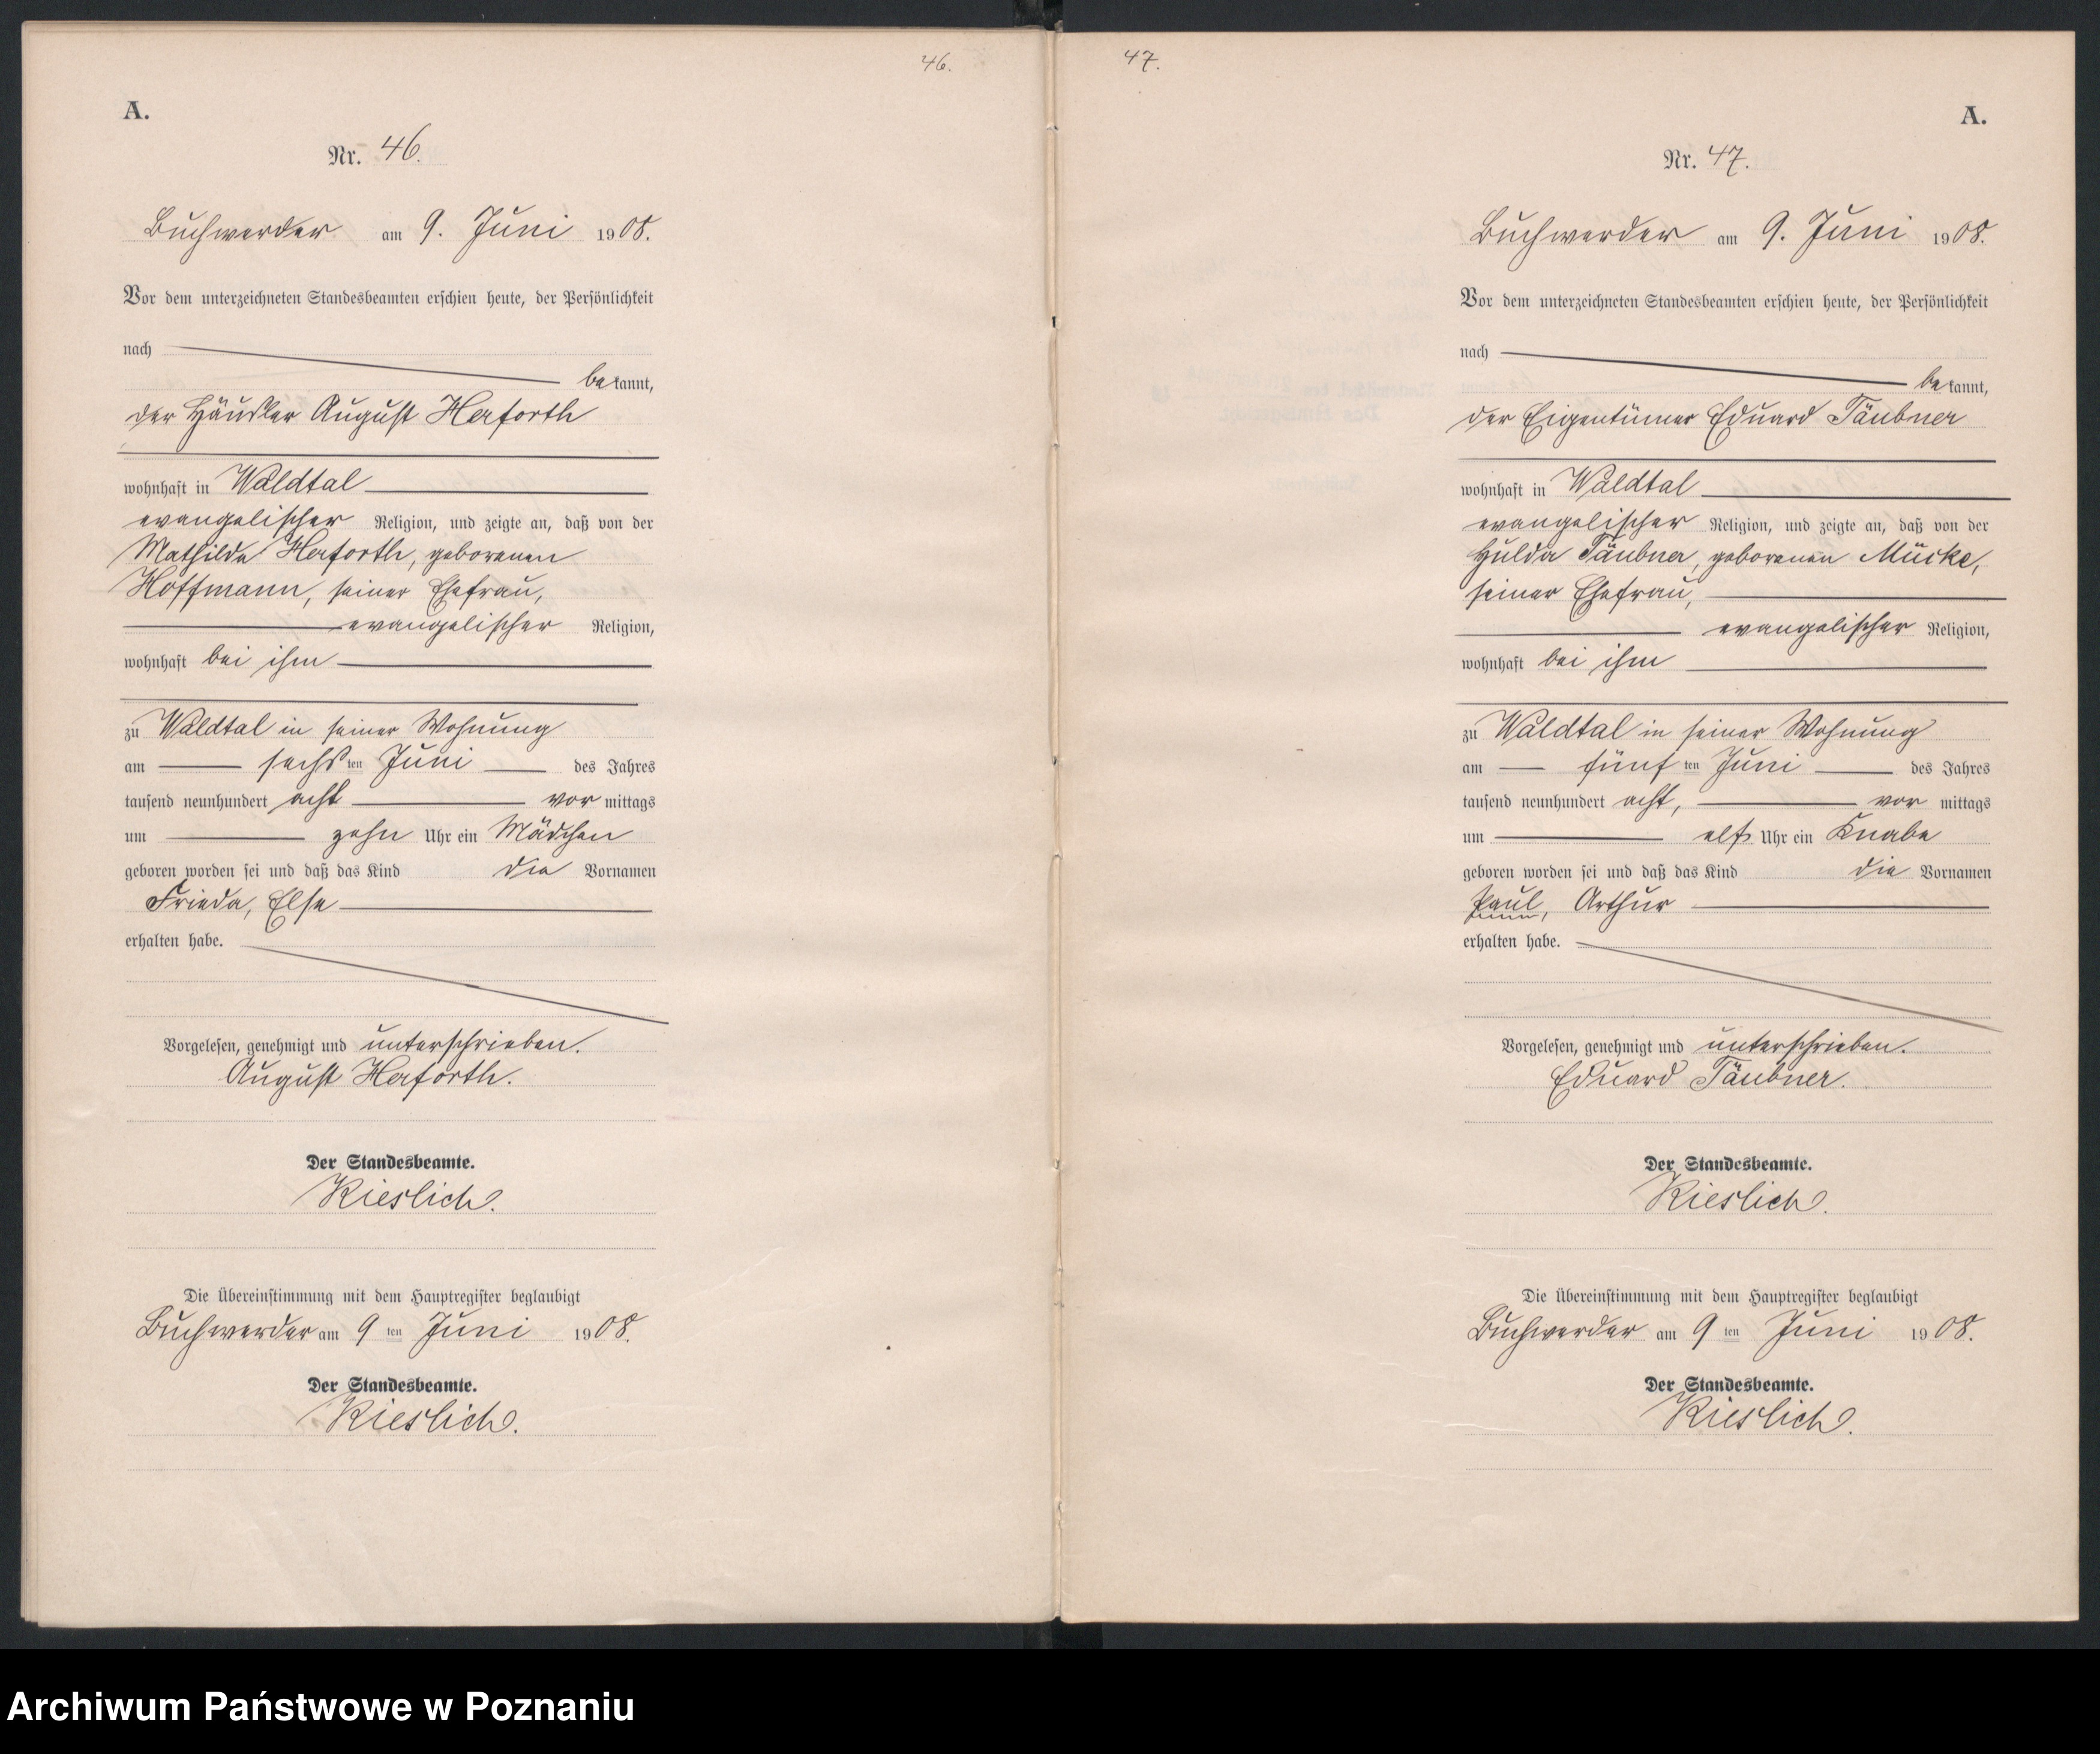 46.
A.
Nr. 46.
Buchwerder am 9. Juni 1908.
Vor dem unterzeichneten Standesbeamten erschien heute, der Persönlichkeit
nach
bekannt,
der Häusler August Herforth
wohnhaft in Waldtal
evangelischer Religion, und zeigte an, daß von der
Mathilde Herforth, geborenen
Hoffmann, seiner Ehefrau,
evangelischer Religion,
wohnhaft bei ihm
zu Waldtal in seiner Wohnung
am sechsten Juni des Jahres
tausend neunhundert acht vormittags
um zehn Uhr ein Mädchen
geboren worden sei und daß das Kind die Vornamen
Frieda, Else
erhalten habe.
Vorgelesen, genehmigt und unterschrieben.
August Herforth.
Der Standesbeamte.
Kieslich.
Die Übereinstimmung mit dem Hauptregister beglaubigt
Buchwerder am 9ten Juni 1908.
Der Standesbeamte.
Kieslich.
47.
A.
Nr. 47.
Buchwerder am 9. Juni 1908.
Vor dem unterzeichneten Standesbeamten erschien heute, der Persönlichkeit
nach
bekannt,
der Eigentümer Eduard Täubner
wohnhaft in Waldtal
evangelischer Religion, und zeigte an, daß von der
Hulda Täubner, geborenen Mücke,
seiner Ehefrau,
evangelischer Religion,
wohnhaft bei ihm
zu Waldtal in seiner Wohnung
am fünften Juni des Jahres
tausend neunhundert acht, vormittags
um elf Uhr ein Knabe
geboren worden sei und daß das Kind die Vornamen
Paul, Arthur
erhalten habe.
Vorgelesen, genehmigt und unterschrieben.
Eduard Täubner.
Der Standesbeamte.
Kieslich.
Die Übereinstimmung mit dem Hauptregister beglaubigt
Buchwerder am 9ten Juni 1908.
Der Standesbeamte.
Kieslich.
Archiwum Państwowe w Poznaniu